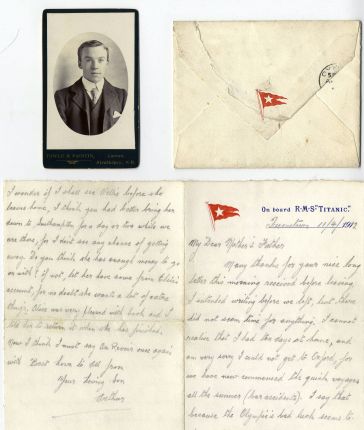 Larne,
Strathspey, N.B.
I wonder if I shall see Willie before she
leaves home, I think you had better bring her
down to Southampton for a day or two while we
are there, for I don't see any chance of getting
away. Do you think she has enough money to go
on with? If not, let her have some from
account, for no doubt she wants a lot of extra
things, Clive was very pleased with book and I
her to return it when she has finished.
Now I think I must say Au Revoir once again
with Best love to all from
Your loving son
Arthur
On board R·M·S "TITANIC."
Queenstown 11/4/1912
My Dear Mother & Father
Many thanks for your nice long
letter this morning received before leaving.
I intended writing before we left, but there
did not seem time for anything. I cannot
realise that I had ten days at home, and
am very sorry I could not get to Oxford, for
we have now commenced the quick voyages
all the summer (bar accidents). I say that
because the Olympic's bad luck seems to